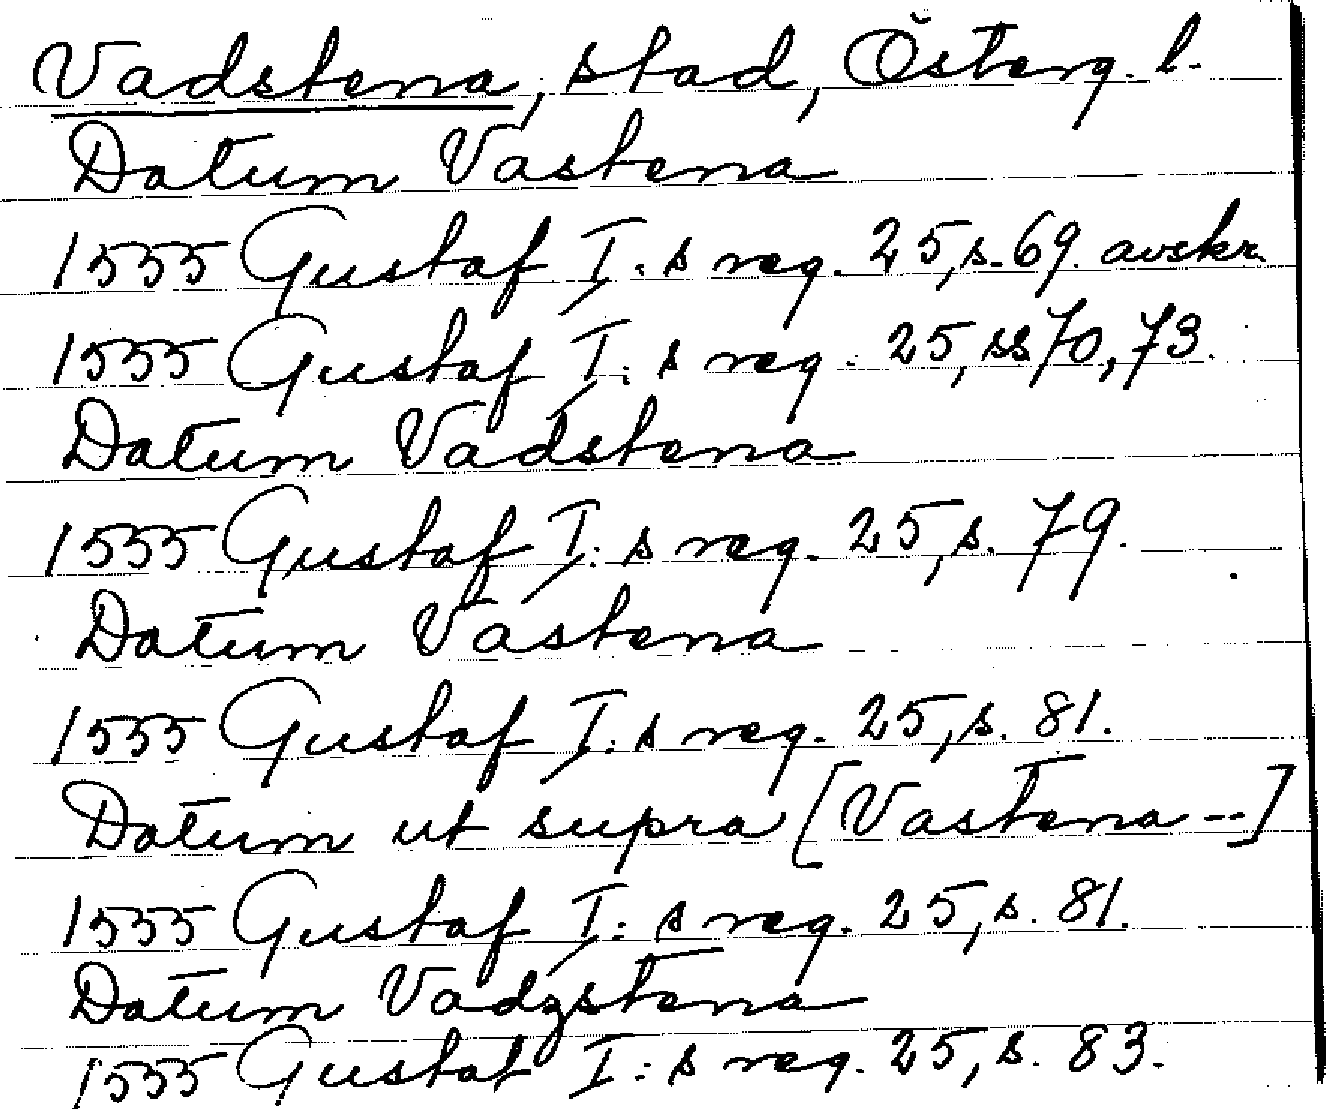 Vadstena, stad, Österg. l.
Datum Vastena
1555 Gustaf I:s reg. 25, s. 69. avskr.
1555 Gustaf I:s reg. 25, ss 70, 73.
Datum Vadstena
1555 Gustaf I:s reg. 25, s. 79.
Datum Vastena
1555 Gustaf I:s reg. 25, s. 81.
Datum ut supra [Vastena --]
1555 Gustaf I:s reg. 25, s. 81.
Datum Vadzstena
1555 Gustaf I:s reg. 25, s. 83.